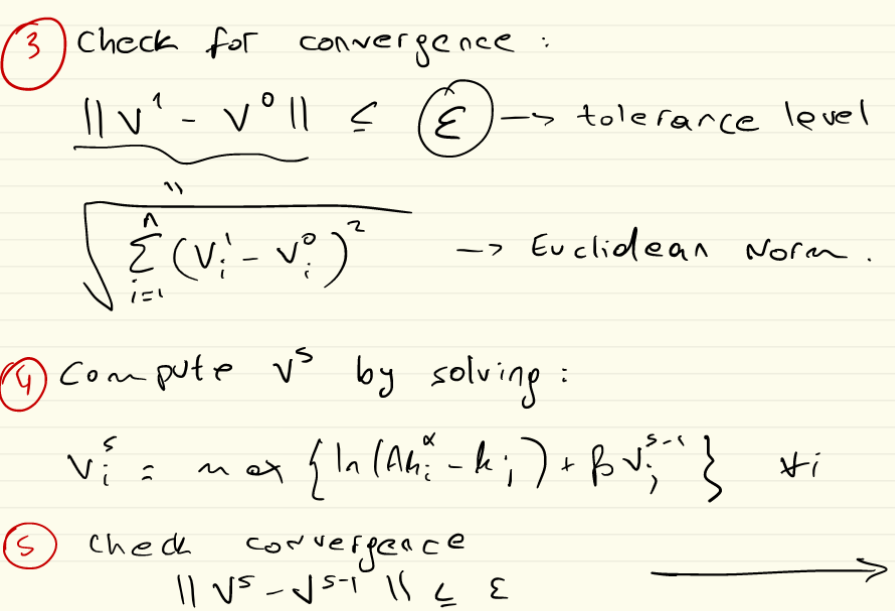 3 Check for convergence :
||V¹ - V⁰|| ≤ ε → tolerance level
"
√(∑ⁿᵢ₌₁ (Vᵢ¹ - Vᵢ⁰)²) → Euclidean Norm.
4 Compute Vˢ by solving :
Vᵢˢ = max {ln(Akᵢᵅ - kⱼ) + βVⱼˢ⁻¹} ∀i
5 Check convergence
||Vˢ - Vˢ⁻¹|| ≤ ε